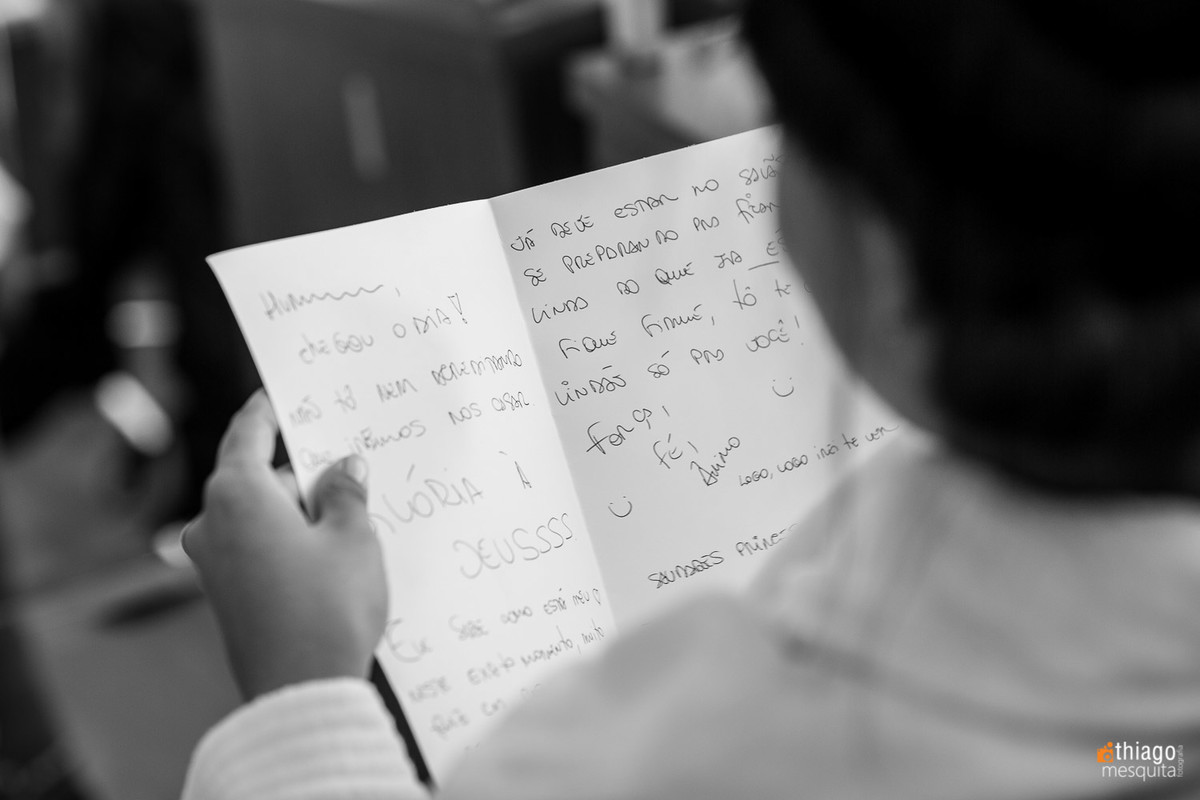 Hummmm,
CHEGOU O DIA!
NÃO TÔ NEM ACREDITANDO
QUE IREMOS NOS CASAR
GLÓRIA À
DEUSSSS
ESTÁ MEU
NESSE EXATO MOMENTO, MUITO
JÁ DEVE ESTAR NO SALÃO
SE PREPARANDO PRA FICAR
LINDA DO QUE JÁ
FIQUE FIRME, TÔ TE
LINDÃO SÓ PRA VOCÊ!
FORÇA!
FÉ!
ÂNIMO
LOGO, LOGO IREI TE VER
SAUDADES
thiago
mesquita
fotografia